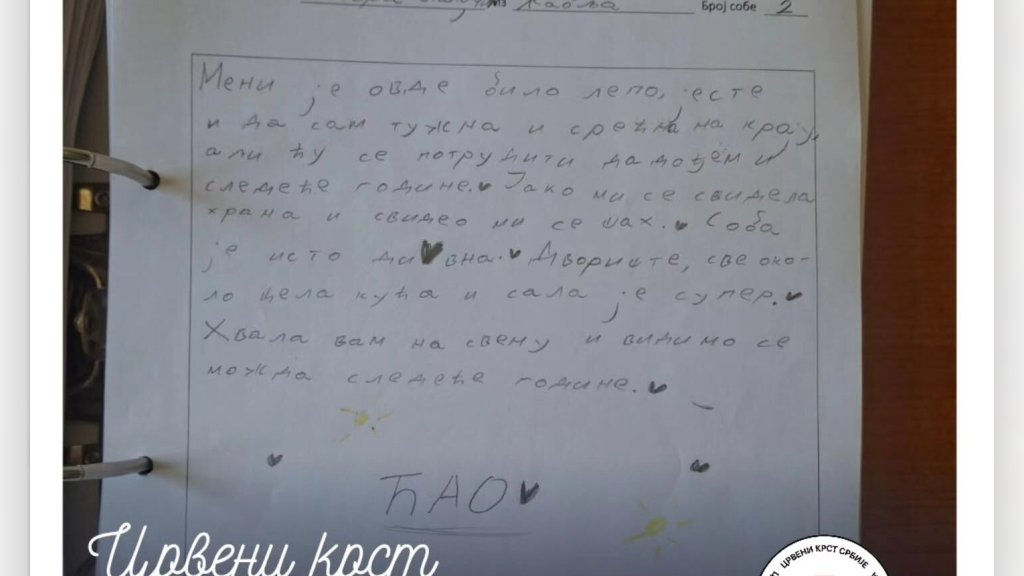 из Каоња Број собе 2
Мени је овде било лепо, јесте
и да сам тужна и срећна на крају,
али ћу се потрудити да дођем и
следеће године. Јако ми се свидела
храна и свидео ми се шах. Соба
је исто дивна. Двориште, све око-
ло цела кућа и сала је супер.
Хвала вам на свему и видимо се
можда следеће године.
ЋАО
Црвени крст
ЦРВЕНИ КРСТ СРБИЈЕ